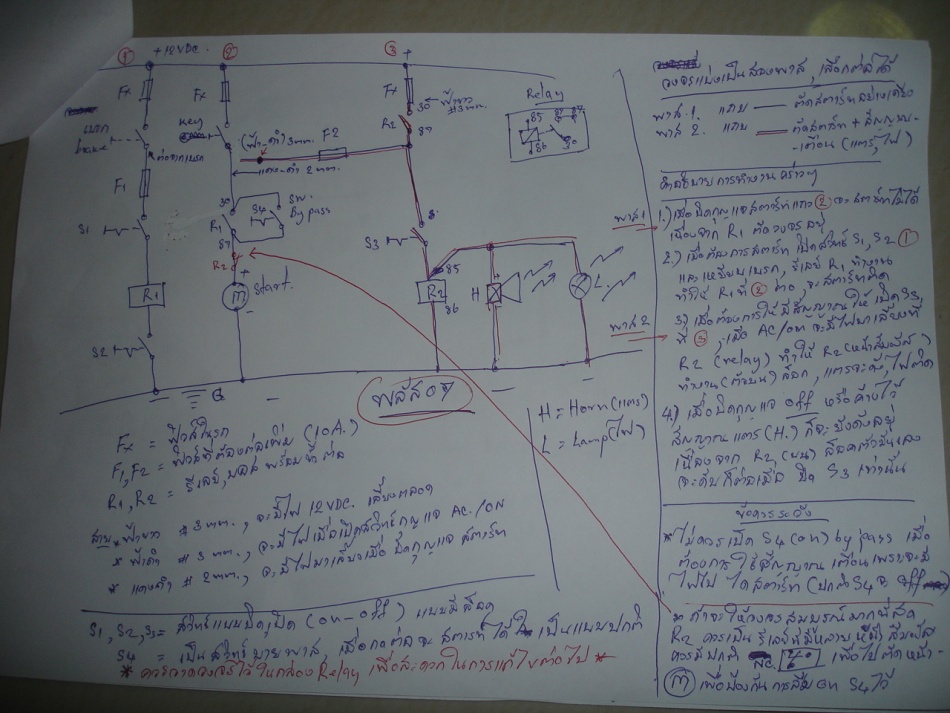 ① +12VDC. ② ③ +
Fx Fx Fx
30 ฟ้าขาว #3mm.
R2
87
Relay
85 87 87
86 30
เบรก
brake
key
(ฟ้า-ดำ) 3mm. F2
ต่อจากเบรก
แดง-ดำ 2mm.
F1
30 S4 SW.
By pass
R1
87
S1
S3
R2
85
R1 M Start.
R2 H L.
86
S2
G
พลัส 09
H = Horn (แตร)
L = Lamp (ไฟ)
Fx = ฟิวส์ในรถ
F1, F2 = ฟิวส์ที่ต้องต่อเพิ่ม (10A.)
R1, R2 = รีเลย์, บอช พร้อมขั้วต่อ
สาย * ฟ้าขาว #3mm., จะมีไฟ 12VDC. เลี้ยงตลอด
* ฟ้าดำ #3mm., จะมีไฟเมื่อเปิดสวิทช์กุญแจ AC./ON
* แดงดำ #2mm., จะมีไฟมาเลี้ยงเมื่อบิดกุญแจ สตาร์ท
S1, S2, S3 = สวิทช์แบบปิด,เปิด (on-off) แบบมีล็อค
S4 = เป็นสวิทช์บายพาส, เมื่อกดต่อจะสตาร์ทได้ เป็นแบบปกติ
* ควรวาดวงจรไว้ในกล่อง Relay เพื่อสะดวกในการแก้ไขต่อไป *
วงจรแบ่งเป็นสองพาส, เลือกต่อได้
พาส.1. แถบ — ตัดสตาร์ทอย่างเดียว
พาส 2. แถบ — ตัดสตาร์ท + สัญญาณ-
-เตือน (แตร, ไฟ)
คำอธิบายการทำงานคร่าวๆ
พาส 1 1.) เมื่อบิดกุญแจสตาร์ทแถว ② จะสตาร์ทไม่ได้
เนื่องจาก R1 ตัดวงจรอยู่
2.) เมื่อต้องการสตาร์ท เปิดสวิทช์ S1, S2 ①
และเหยียบเบรก, รีเลย์ R1 ทำงาน
ทำให้ R1 ที่ ② ต่อ, จะสตาร์ทติด
3) เมื่อต้องการให้มีสัญญาณให้เปิด S3,
พาส 2 ที่ ③, เมื่อ AC/on จะมีไฟมาเลี้ยงที่
R2 (relay) ทำให้ R2 (หน้าสัมผัส)
ทำงาน (ตัวบน) ล็อก, แตรจะดัง, ไฟติด
4) เมื่อบิดกุญแจ off หรือค้างไว้
สัญญาณแตร (H.) ก็จะยังดังอยู่
เนื่องจาก R2 (บน) ล็อคตัวมันเอง
จะดับก็ต่อเมื่อ ปิด S3 เท่านั้น
ข้อควรระวัง
* ไม่ควรเปิด S4 (on) by pass เมื่อ
ต้องการใช้สัญญาณเตือนเพราะจะมี
ไฟไปไดสตาร์ท (ปกติ S4 จะ off
* ถ้าจะให้วงจรสมบูรณ์มากที่สุด
R2 ควรเป็นรีเลย์ที่มีหลายหน้าสัมผัส
ควรมีปกติ NC. เพื่อไปตัดหน้า-
M เพื่อป้องกันการลืม on S4 ไว้